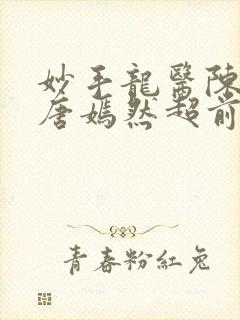 妙手龍醫陳
唐嫣然超前
青春粉紅兔